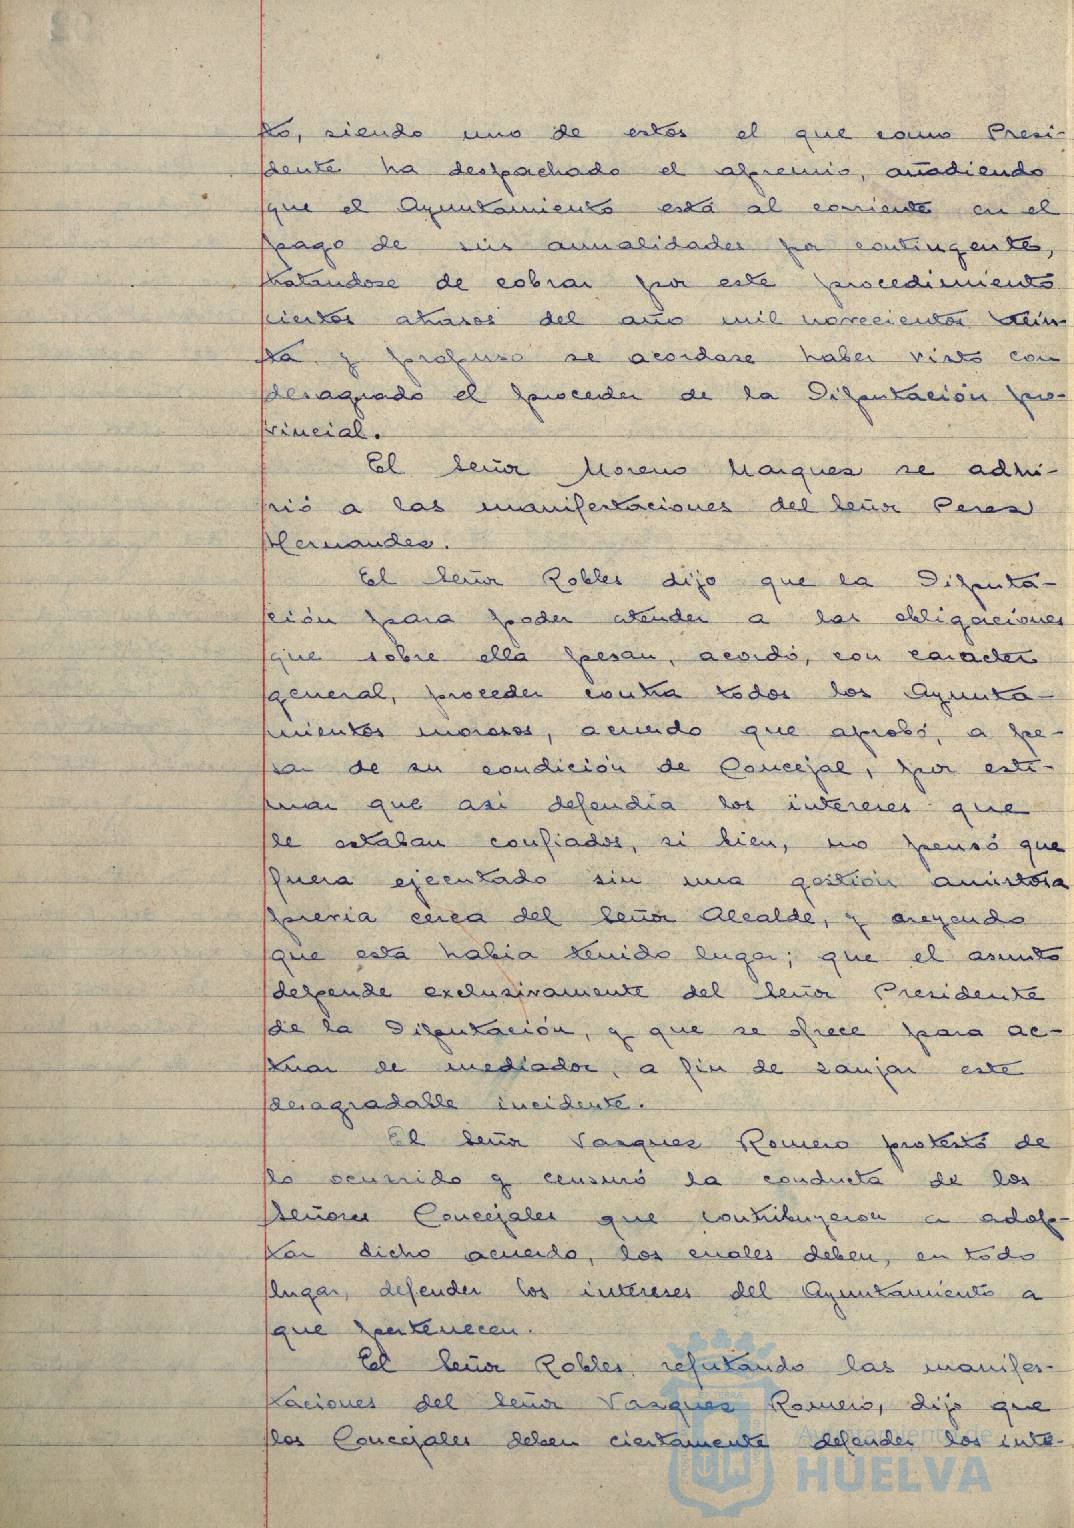 to, siendo uno de estos el que como Presi-
dente ha despachado el apremio, añadiendo
que el Ayuntamiento está al corriente en el
pago de sus anualidades por contingente,
tratandose de cobrar por este procedimiento
ciertos atrasos del año mil novecientos trein-
ta y propuso se acordase haber visto con
desagrado el proceder de la Diputación pro-
vincial.
El Señor Moreno Marquez se adhi-
rió a las manifestaciones del Señor Perez
Hernandez.
El Señor Robles dijo que la Diputa-
ción para poder atender a las obligaciones
que sobre ella pesan, acordó, con caracter
general, proceder contra todos los Ayunta-
mientos morosos, acuerdo que aprobó, a pe-
sar de su condición de Concejal, por esti-
mar que asi defendia los intereses que
le estaban confiados, si bien, no pensó que
fuera ejecutado sin una gestión amistosa
previa cerca del Señor Alcalde, y creyendo
que esta habia tenido lugar; que el asunto
depende exclusivamente del Señor Presidente
de la Diputación, y que se ofrece para ac-
tuar de mediador, a fin de zanjar este
desagradable incidente.
El Señor Vazquez Romero protestó de
lo ocurrido y censuró la conducta de los
Señores Concejales que contribuyeron a adop-
tar dicho acuerdo, los cuales deben, en todo
lugar, defender los intereses del Ayuntamiento a
que pertenecen.
El Señor Robles, refutando las manifes-
taciones del Señor Vazquez Romero, dijo que
los Concejales deben ciertamente defender los inte-
Ayuntamiento de
HUELVA